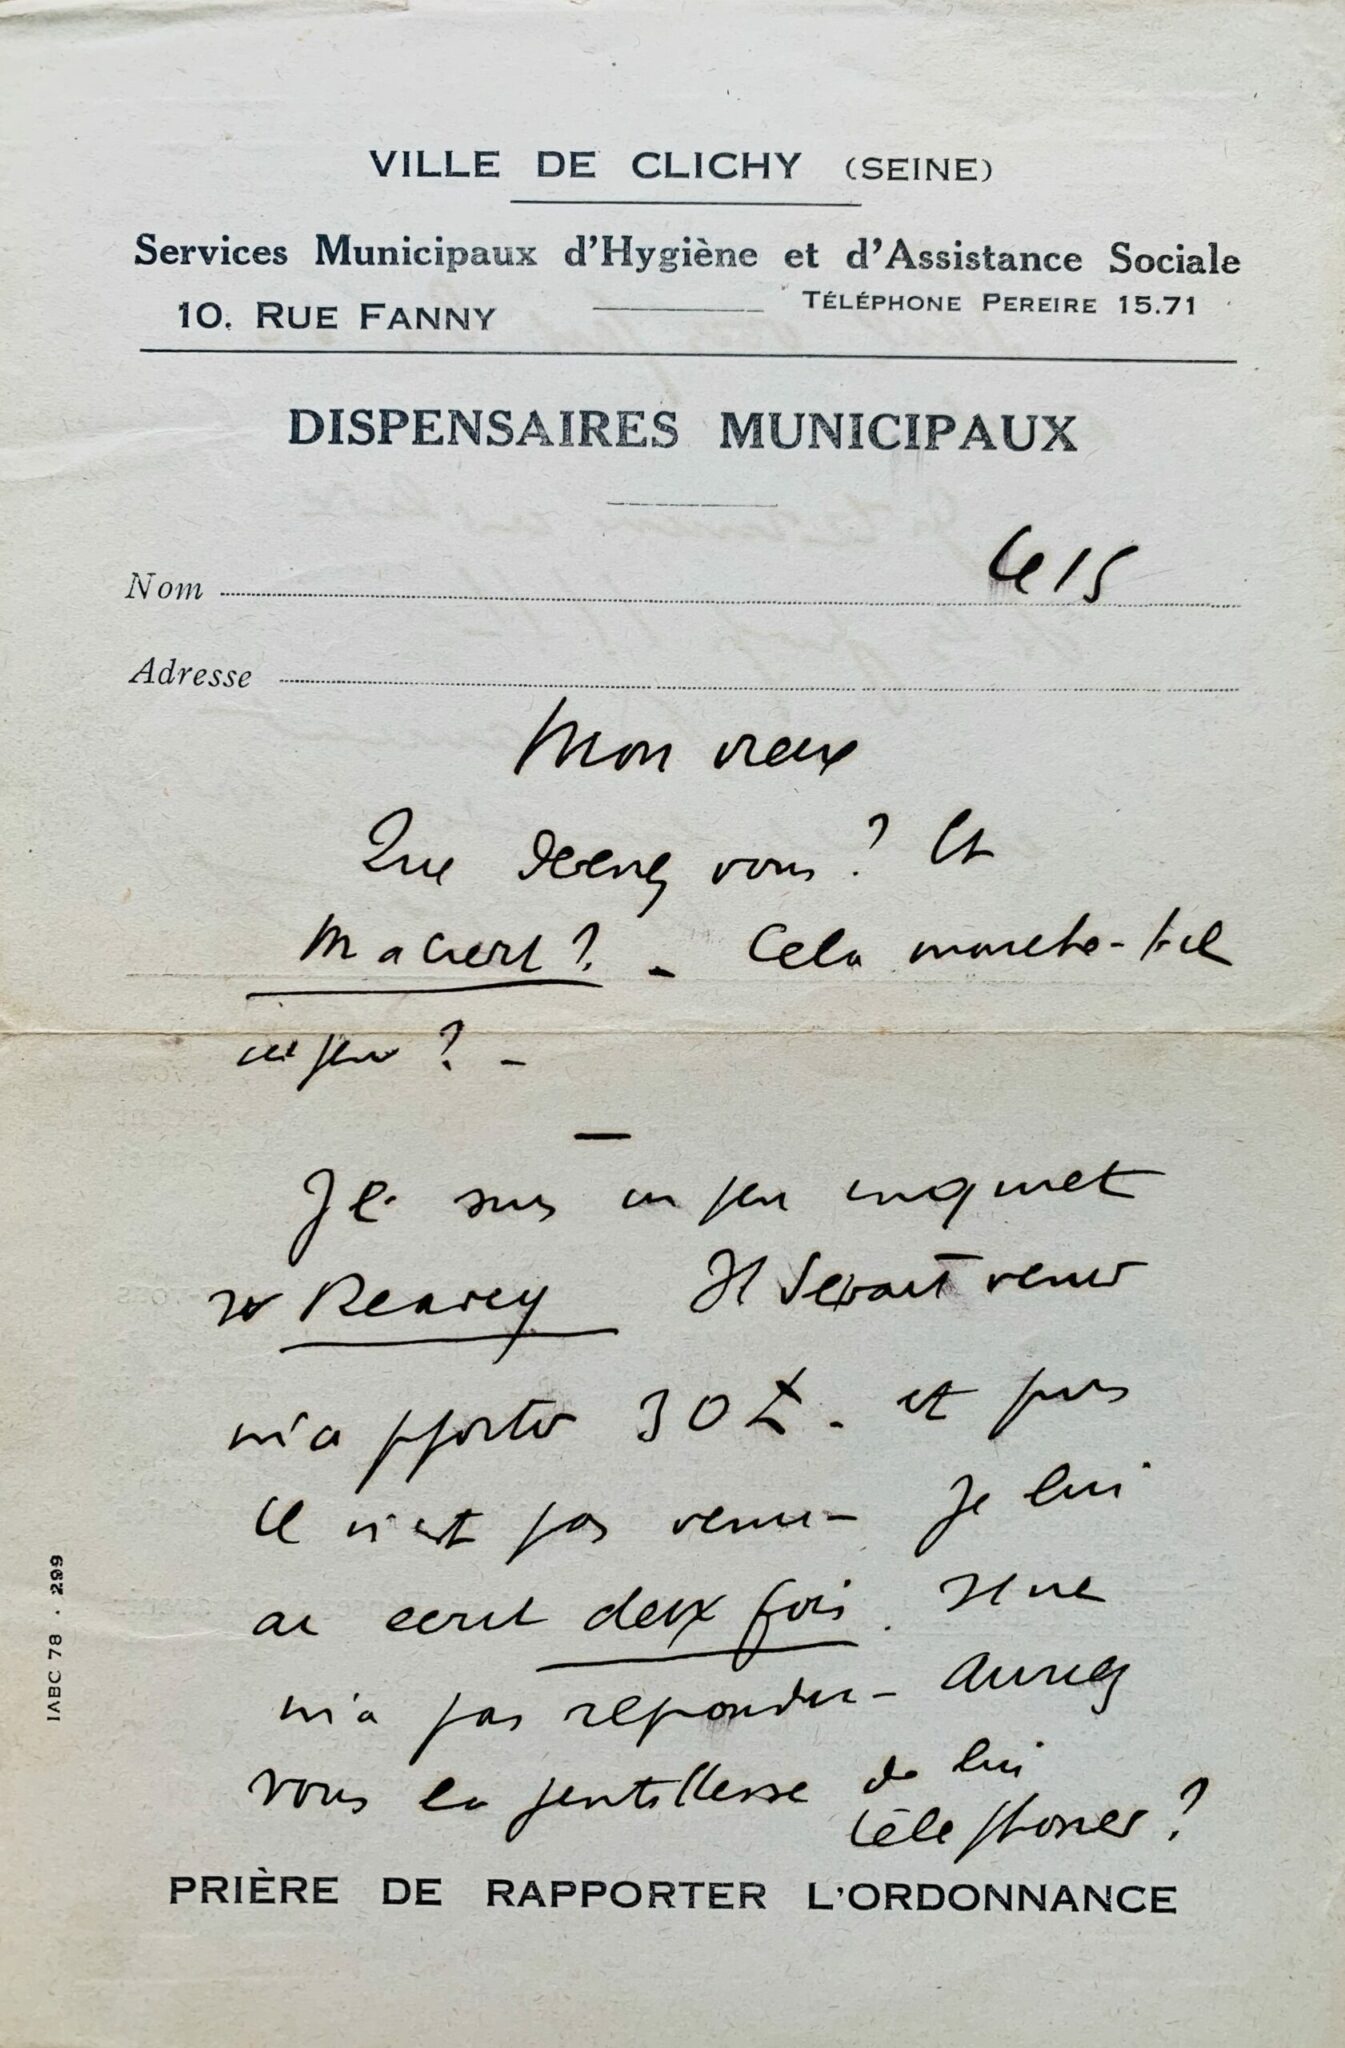 VILLE DE CLICHY (SEINE)
Services Municipaux d'Hygiène et d'Assistance Sociale
10. RUE FANNY TÉLÉPHONE PEREIRE 15.71
DISPENSAIRES MUNICIPAUX
Nom
Adresse
Mon vieux
Que devenez vous ? Et
Cela marche-t-il
un peu ? -
Je suis un peu inquiet
Il devait venir
m'apporter 30 £. et puis
il n'est pas venu - Je lui
ai ecrit deux fois. Il ne
m'a pas repondu - Auriez
vous la gentillesse de lui
téléphoner ?
PRIÈRE DE RAPPORTER L'ORDONNANCE
IABC 78 . 299